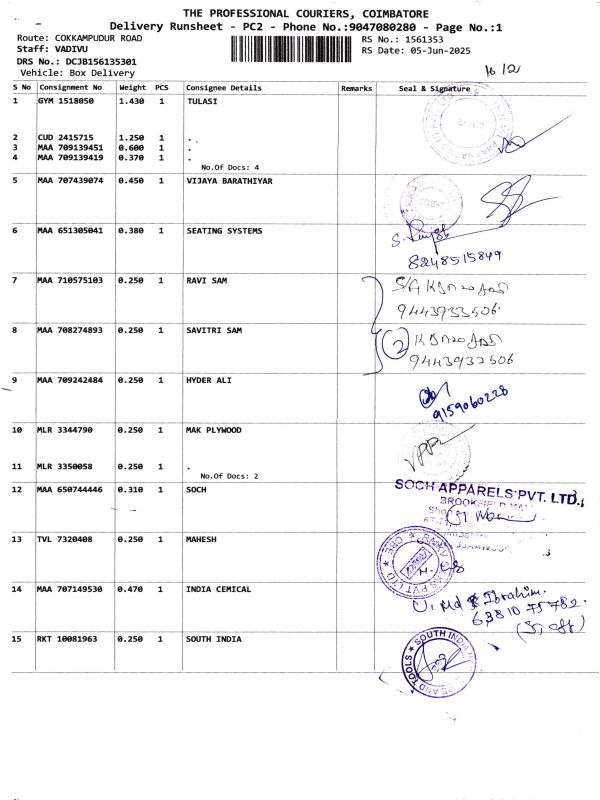 THE PROFESSIONAL COURIERS, COIMBATORE
Delivery Runsheet - PC2 - Phone No.:9047080280 - Page No.:1
Route: COKKAMPUDUR ROAD
RS No.: 1561353
Staff: VADIVU
RS Date: 05-Jun-2025
DRS No.: DCJB156135301
Vehicle: Box Delivery
S No Consignment No Weight PCS Consignee Details Remarks Seal & Signature
1 GYM 1518050 1.430 1 TULASI
2 CUD 2415715 1.250 1 . .
3 MAA 709139451 0.600 1 .
4 MAA 709139419 0.370 1 .
No.Of Docs: 4
5 MAA 707439074 0.450 1 VIJAYA BARATHIYAR
6 MAA 651305041 0.380 1 SEATING SYSTEMS
8248515849
7 MAA 710575103 0.250 1 RAVI SAM
9443933506
8 MAA 708274893 0.250 1 SAVITRI SAM
2
9443933506
9 MAA 709242484 0.250 1 HYDER ALI
9159060228
10 MLR 3344790 0.250 1 MAK PLYWOOD
11 MLR 3350058 0.250 1 .
No.Of Docs: 2
12 MAA 650744446 0.310 1 SOCH
SOCH APPARELS PVT. LTD.,
13 TVL 7320408 0.250 1 MAHESH
14 MAA 707149530 0.470 1 INDIA CEMICAL
Ibrahim.
63810 75782.
15 RKT 10081963 0.250 1 SOUTH INDIA
SOUTH INDIA
AND TOOLS